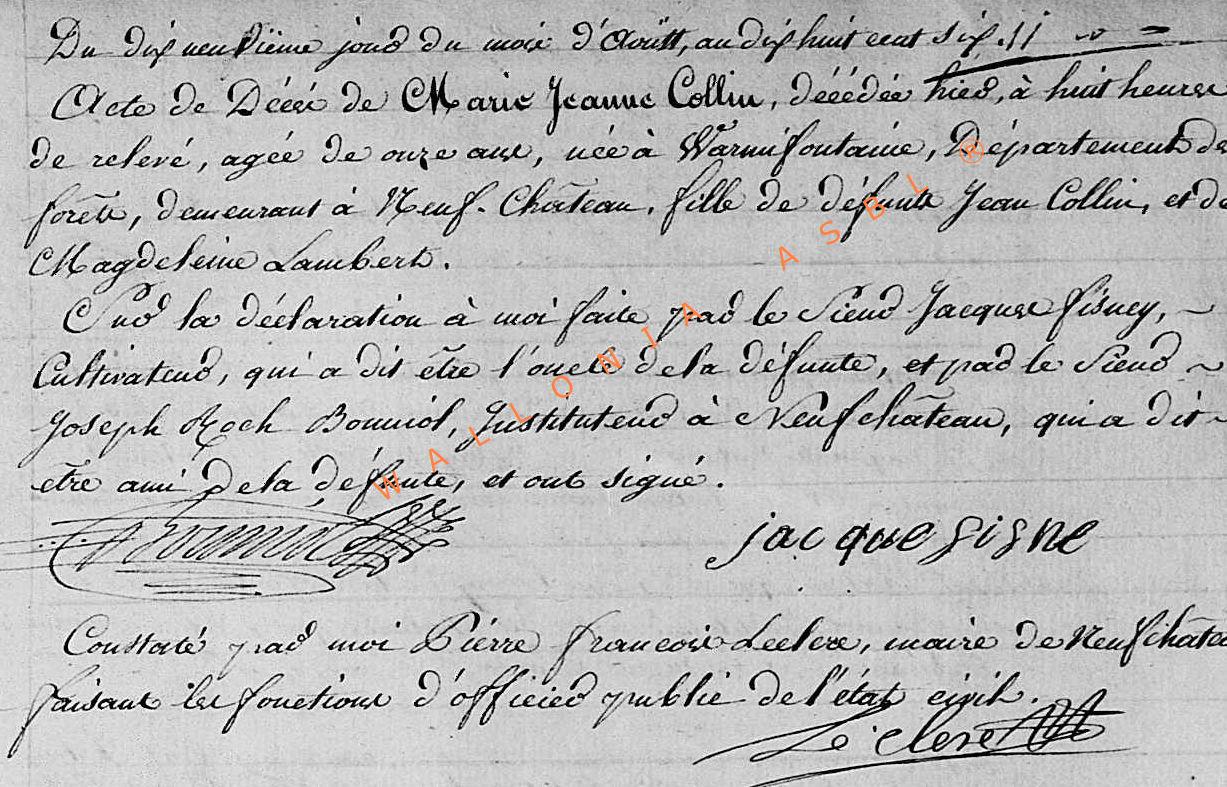 Du dix neuvième jour du mois d'Aoüst, an dix huit cent six. //
Acte de Décés de Marie Jeanne Collin, décédée hier, à huit heures
de relevé, agée de onze ans, née à Warmifontaine, Département de
forêts, demeurant à Neuf-Château, fille de défunts Jean Collin, et de
Magdeleine Lambert.
Sur la déclaration à moi faite par le Sieur Jacques fisney,
Cultivateur, qui a dit être l'oncle de la défunte, et par le Sieur
Joseph Roch Bonniol, Instituteur à Neufchâteau, qui a dit
être ami de la défunte, et ont signé.
Bonniol jacque gigne
Constaté par moi Pierre françois Leclere, maire de Neufchâteau
faisant les fonctions d'officier public de l'état civil.
Leclere
WALLONIA ASBL ®